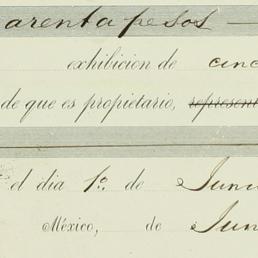 arenta pesos
exhibicion de cinc
de que es propietario, represent
el dia 1º de Juni
México, de Jun